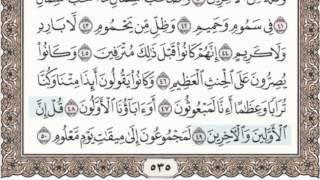 فِي سَمُومٍ وَحَمِيمٍ ٤٢ وَظِلٍّ مِّن يَحْمُومٍ ٤٣ لَّا بَارِدٍ
وَلَا كَرِيمٍ ٤٤ إِنَّهُمْ كَانُوا۟ قَبْلَ ذَٰلِكَ مُتْرَفِينَ ٤٥ وَكَانُوا۟
يُصِرُّونَ عَلَى ٱلْحِنثِ ٱلْعَظِيمِ ٤٦ وَكَانُوا۟ يَقُولُونَ أَئِذَا مِتْنَا وَكُنَّا
تُرَابًا وَعِظَٰمًا أَءِنَّا لَمَبْعُوثُونَ ٤٧ أَوَءَابَآؤُنَا ٱلْأَوَّلُونَ ٤٨ قُلْ إِنَّ
ٱلْأَوَّلِينَ وَٱلْءَاخِرِينَ ٤٩ لَمَجْمُوعُونَ إِلَىٰ مِيقَٰتِ يَوْمٍ مَّعْلُومٍ ٥٠
٥٣٥